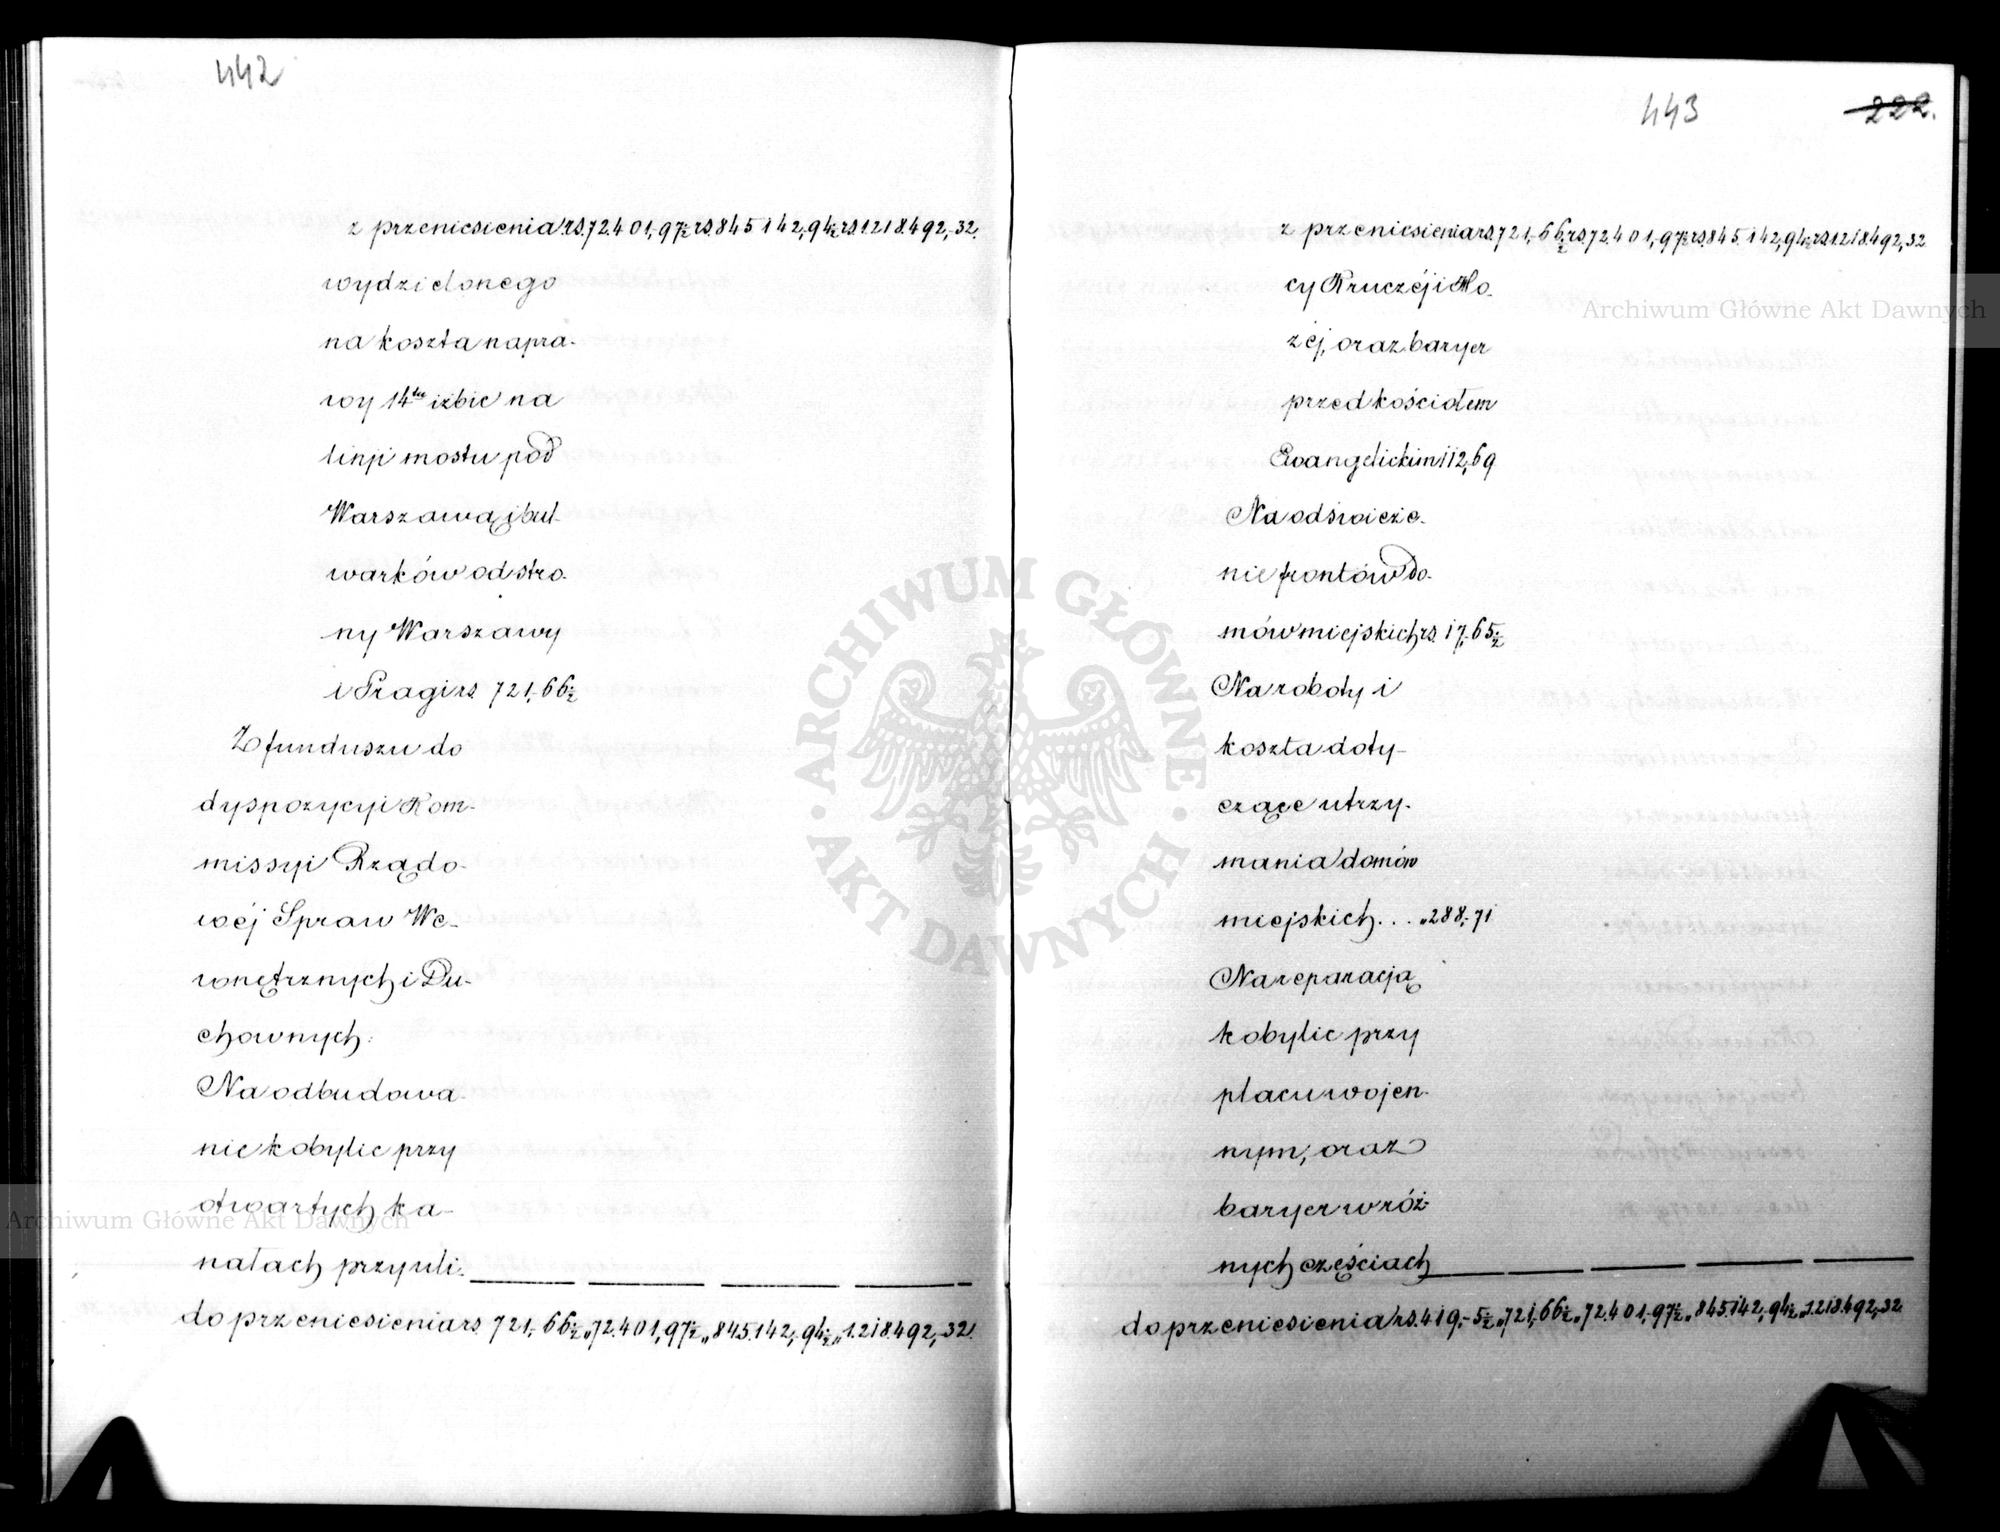 442
z przeniesienia rs. 72.401,-97½ rs. 845.142,-94½ rs 1.218.492,-32.
wydzielonego
na koszta napra-
wy 14tu izbic na
linji mostu pod
Warszawą i bul-
warków od stro-
ny Warszawy
i Pragi rs. 721,-66½
Z funduszu do
dyspozycyi Kom-
missyi Rządo-
wéj Spraw We-
wnętrznych i Du-
chownych:
Na odbudowa-
nie kobylic przy
otwartych ka-
nałach przy uli-
do przeniesienia rs. 721,-66½ „ 72.401,97½ „ 845.142,-94½ „ 1.218.492,-32.
443
222.
z przeniesienia rs. 721,-66½ rs. 72.401,-97½ rs. 845.142,94½ rs. 1.218.492,32
cy Kruczéj i Ho-
żéj, oraz baryer
przed kościołem
Ewangelickim 112,69
Na odświeże-
nie frontów do-
mów miejskich rs. 17,-65½
Na roboty i
koszta doty-
czące utrzy-
mania domów
miejskich . . . „ 288,-71
Na reparacją
kobylic przy
placu wojen-
nym, oraz
baryer w róż-
nych częściach
do przeniesienia rs. 419,-5½ „ 721,-66½ „ 72.401,-97½ „ 845.142,-94½ „ 1.218.492,-32
Archiwum Główne Akt Dawnych
Archiwum Główne Akt Dawnych
ARCHIWUM GŁÓWNE · AKT DAWNYCH ·